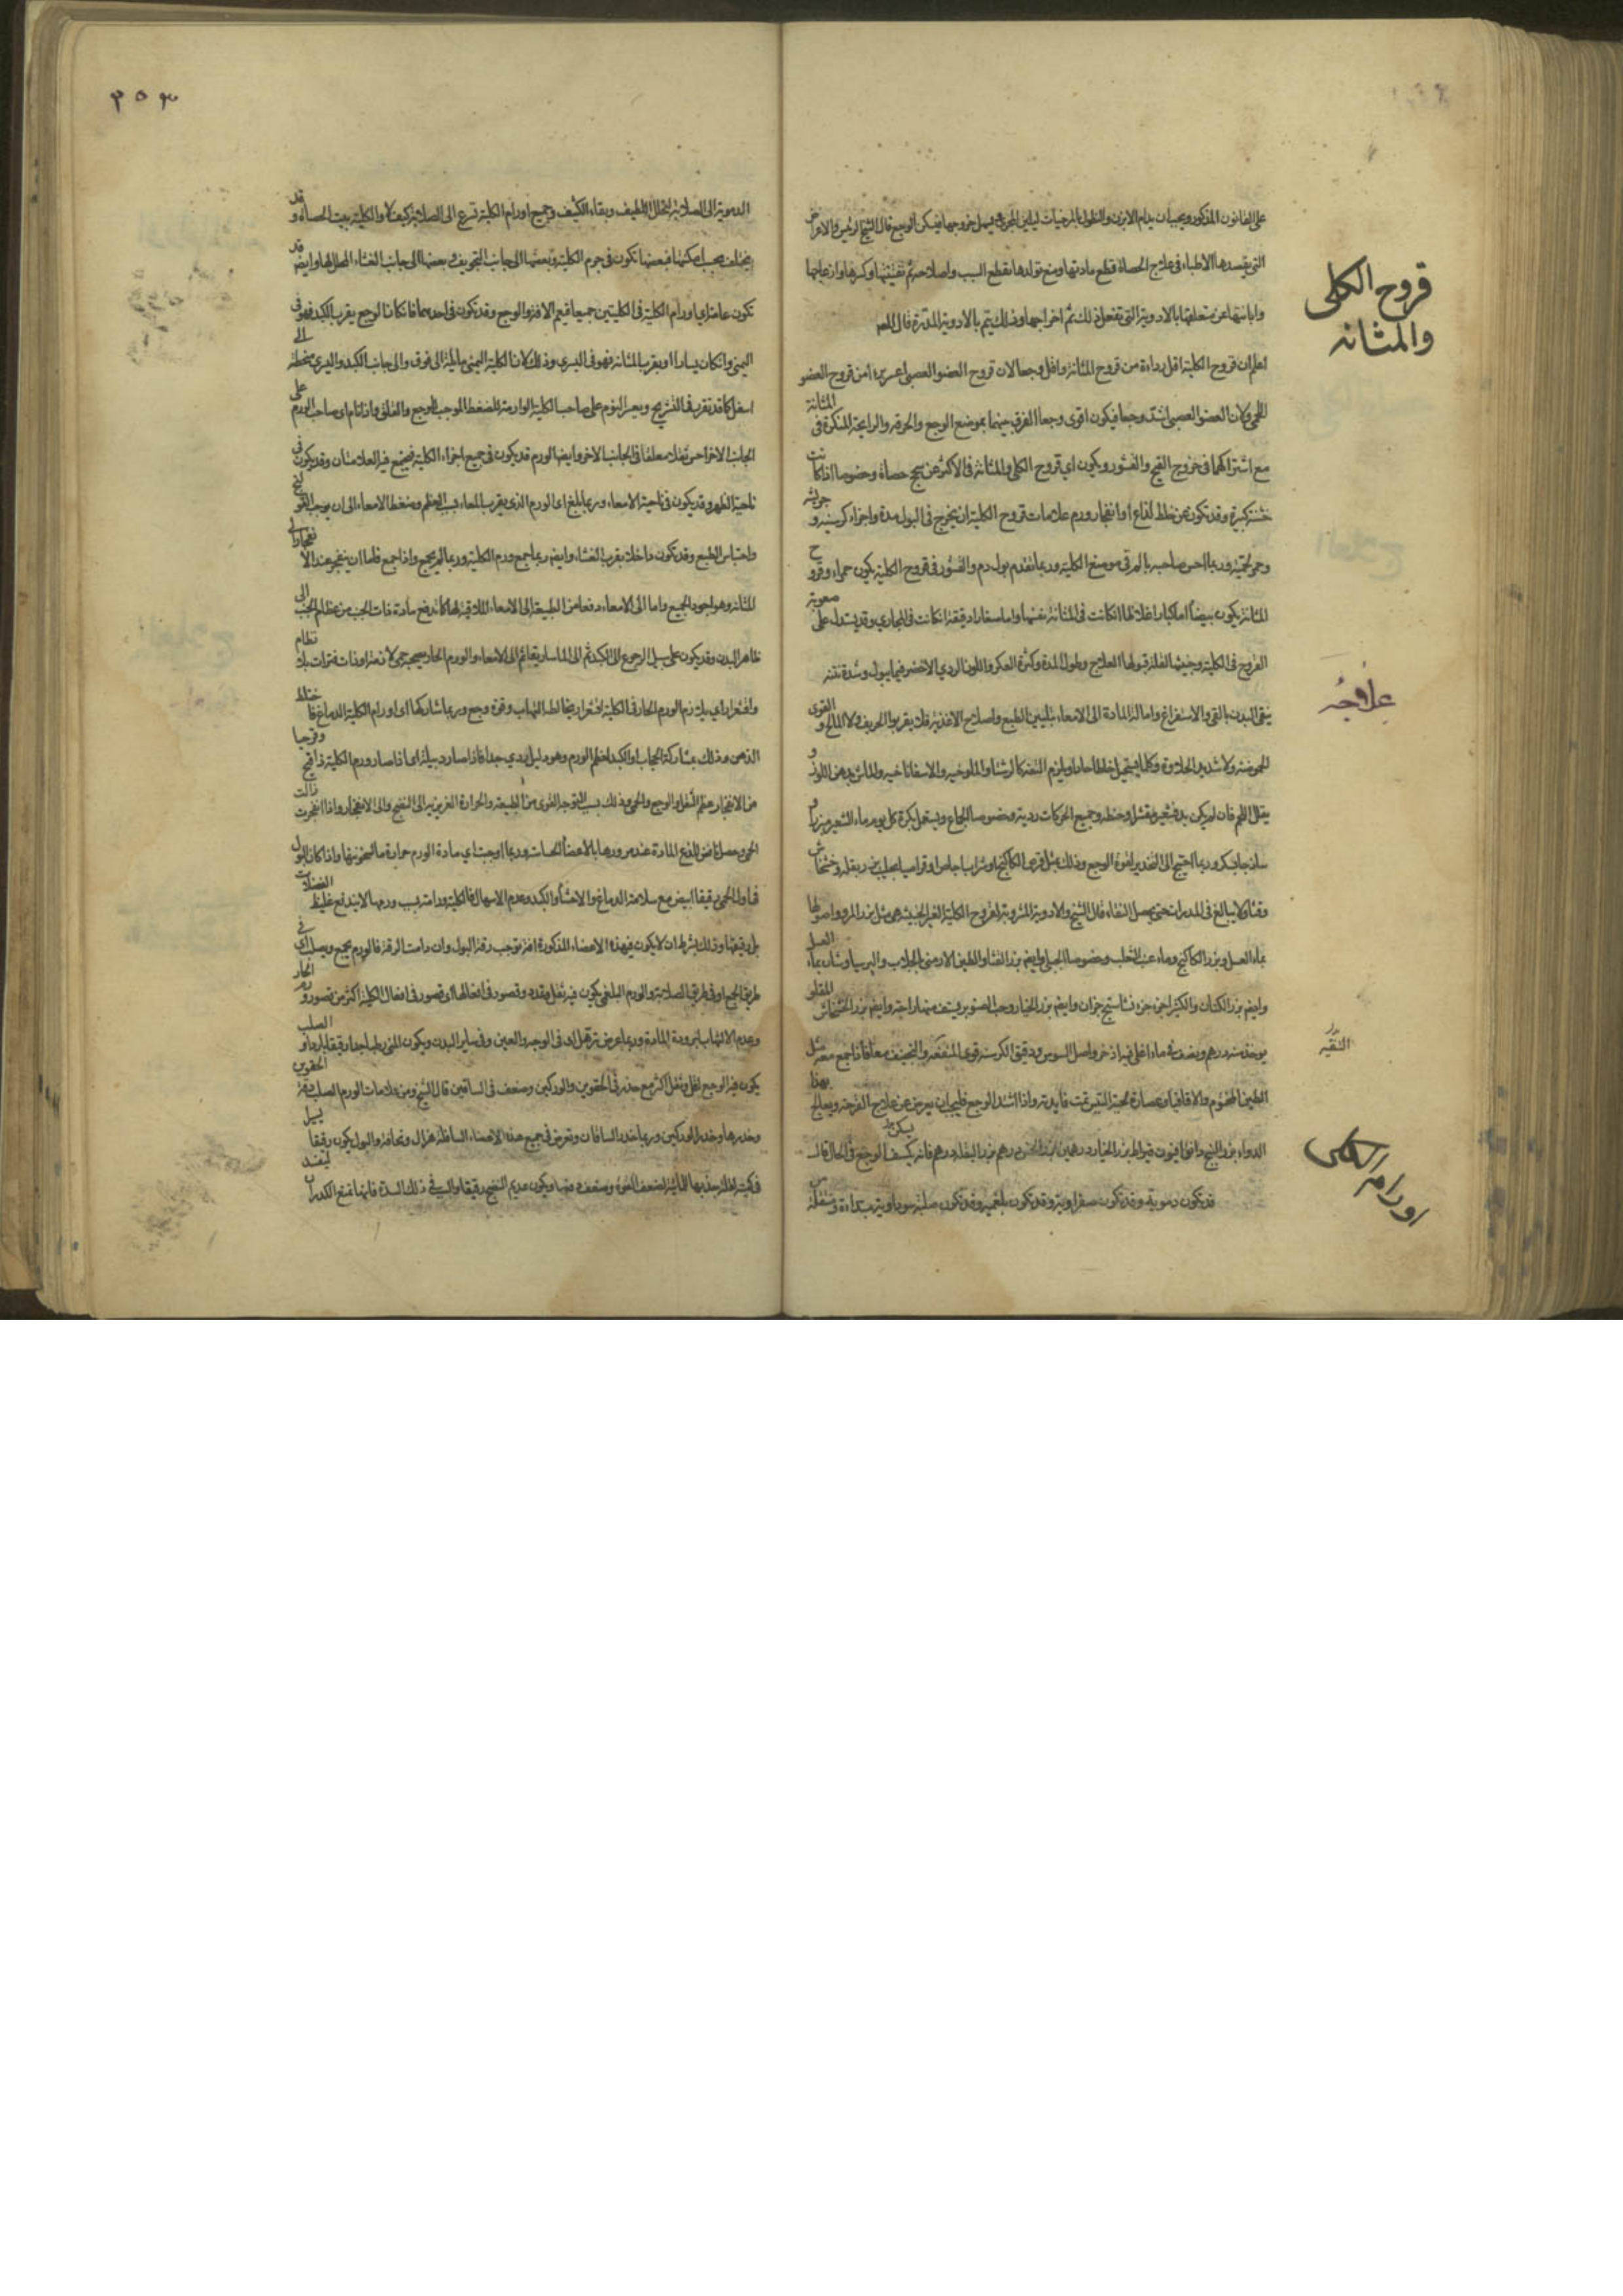 قروح الكلى
والمثانه
على القانون المذكور ويجب ان يدام الابزن والنطول بالمرخيات ليلين المجرى فيسهل خروجها فيسكن الوجع قال الشيخ الرئيس والاغراض
التي يقصدها الاطباء في علاج الحصاة قطع مادتها ومنع تولدها بقطع السبب واصلاحه ثم تفتيتها وكسرها وازعاجها
وابانتها عن متعلقها بالادوية التي تفعل ذلك ثم اخراجها وذلك يتم بالادوية المدرة قال المص
اعلم ان قروح الكلية اقل رداءة من قروح المثانة واقل وجعا لان قروح العضو العصبي اعسر برءا من قروح العضو
اللحمي ولان العضو العصبي اشد وجعا فيكون اقوى وجعا الفرق بينهما بموضع الوجع والحرقة والرايحة المنكرة في المثانة
مع اشتراكهما في خروج القيح والقشور ويكون اي قروح الكلى والمثانة في الاكثر عن سحج حصاة وخصوصا اذا كانت
خشنة كبيرة وقد تكون عن خلط لذاع او انفجار ورم علامات قروح الكلية ان يخرج في البول مدة واجزاء كرسنية و
وحمر لحمية وربما احس صاحبه بالمرقي موضع الكلية وربما تقدم بول دم والقشور في قروح الكلية يكون حمراء وقروح
المثانة يكون بيضا اما كبارا غلاظا ان كانت في المثانة نفسها واما صغارا دقيقة ان كانت في المجاري وقد يستدل على صعوبة
القروح في الكلية وخبثها لقلة قبولها العلاج وطول المدة وكثرة العكر واللون الردي الاخضر فيما يبول وشدة نتنه
علاجه
ينقى البدن بالقي والاستفراغ وامالة المادة الى الامعاء بتليين الطبع واصلاح الاغذية فلا يقربوا الحريف ولا المالح و القوى
الحموضة ولا شديد الحلاوة وكلما يستحيل خلطا حادا ويلزم التفه كالرشتا والملوخيه والاسفاناخيه والماش بدهن اللوز و
يقلل اللحم فان لم يكن بد
وجميع الحركات ردية وخصوصا الجماع ويستعمل بكرة كل يوم ماء الشعير
ساذجا بسكر وربما احتيج الى التخدير لقوة الوجع وذلك بمثل قرص الكاكنج او شراب اجاص او قراصيا بحليب بزر بقلة وخشخاش
وقثا ولا يبالغ في المدرات حتى يحصل النقاء قال الشيخ والادوية المشروبة لقروح الكلية الغير الخبيثة هي مثل بزر المرو واصولها
بماء العسل وبزر الكاكنج وماء عنب الثعلب وخصوصا الجبلي وايضا بزر القثا والطين الارمني بالجلاب
وايضا بزر الكتان والكثيرا جزء جزء نشاستج جزءان وايضا بزر الخيار وحب الصنوبر
وايضا بزر الخشخاش المقلو
يوخذ منه درهم
اذخر واصل السوس ودقيق الكرسنة قوي المنفعة والتجفيف معا فاذا جمع معه مثل
الطين المختوم والاقاقيا وعصارة لحية التيس تمت فايدته واذا اشتد الوجع فليجب ان يعرض عن علاج القرحة ويعالج بهذا
الدواء بزر البنج دانق افيون قيراط بزر الخيار درهمين بزر الخس درهم بزر البقلة درهم فانه يسكن الوجع في الحال قال
اورام الكلى
قد تكون دموية وقد تكون صفراوية وقد تكون بلغمية وقد تكون صلبة سوداوية
٣٥٣
الدموية الى الصلابة لتحلل اللطيف وبقاء الكثيف وجميع اورام الكلية تسرع الى الصلابة كيف لا والكلية بيت الحصاة وقد
يختلف بحسب امكنتها فبعضها تكون في جرم الكلية وبعضها الى جانب التجويف وبعضها الى جانب الغشاء المجلل لها وايضا قد
تكون عامة اي اورام الكلية في الكليتين جميعا فيعم الافة والوجع وقد تكون في احديهما فان كان الوجع بقرب الكبد فهو في
اليمنى وان كان يسارا او بقرب المثانة فهو في اليسرى وذلك لان الكلية اليمنى مايلة الى فوق والى جانب الكبد واليسرى منحطة الى
اسفل كما قد تقرر في التشريح ويعسر النوم على صاحب الكلية الوارمة للضغط الموجب للوجع والقلق واذا نام اي صاحب الورم على
الجانب الاخر احس بثقل معلقا في الجانب الاخر وايضا الورم قد يكون في جميع اجزاء الكلية فيجتمع فيه العلامتان وقد يكون في
ناحية الظهر وقد يكون في ناحية الامعاء وربما بلغ اي الورم الذي بقرب المعاء بسبب العظم وضغط الامعاء الى ان يوجب القولنج
واحتباس الطبع وقد تكون داخلا بقرب الغشاء وايضا ربما جمع ورم الكلية وربما لم يجمع واذا جمع فاما ان ينفجر عند الانفجار الى
المثانة وهو اجود الجميع واما الى الامعاء دفعا من الطبيعة الى الامعاء الملاقية لها كما تدفع مادة ذات الجنب من عظام الجنب الى
ظاهر البدن وقد يكون على سبيل الرجوع الى الكبد ثم الى الماساريقا ثم الى الامعاء والورم الحار يصحبه حمى لازمة او ذات فترات بلا نظام
واقشعرار اي يلزم الورم الحار في الكلية اقشعرار يخالط التهاب وقوة وجع وربما شاركها اي اورام الكلية الدماغ فاختلط
الذهن وذلك بمشاركة الحجاب او الكبد لعظم الورم وهو دليل ردي جدا فاذا صار دبيلة اي اذا صار ورم الكلية ذا قيح وقرب
من الانفجار عظم الثقل والوجع والحمى وذلك بسبب التوجه القوى من الطبيعة والحرارة الغريزية الى النضج والى الانفجار واذا انفجرت زالت
الحمى وحصل نافض للذع المادة عند مرورها بالاعضاء الحساسة وربما اوجبت اي مادة الورم حرارة ما لسخونتها واذا كان البول
في اول الحمى رقيقا ابيض مع سلامة الدماغ والاحشاء والكبد وعدم الاسهال فالكلية وارمة بسبب ورمها لا يندفع غليظ الفضلات
بل رقيقها وذلك بشرط ان لا يكون في هذه الاعضاء المذكورة افة توجب رقة البول وان دامت الرقة فالورم يجمع
طريق الجمع او في طريق الصلابة والورم البلغمي يكون فيه ثقل وتمدد وقصور في افعالها اي قصور في افعال الكلية اكثر من قصور ورم الحار
وعدم الالتهاب لبرودة المادة وربما عرض ترهل له في الوجه والعين وفي ساير البدن ويكون المني رطبا جدا رقيقا باردا و الصلب
يكون فيه الوجع اقل وثقل اكثر مع خدر في الحقوين والوركين وضعف في الساقين قال الشيخ ومن علامات الورم الصلب دقة الحقوين
وخدرها وخدر الوركين وربما خدر الساقان وتعرض في جميع هذه الاعضاء السافلة هزال ونحافة والبول يكون رقيقا يسيرا
في كميته لقلة جذبها المائية لضعف القوة وضعف دفعها ويكون عديم النضج رقيقا والسبب في ذلك السدة فانها تمنع الكدر ان ينفذ